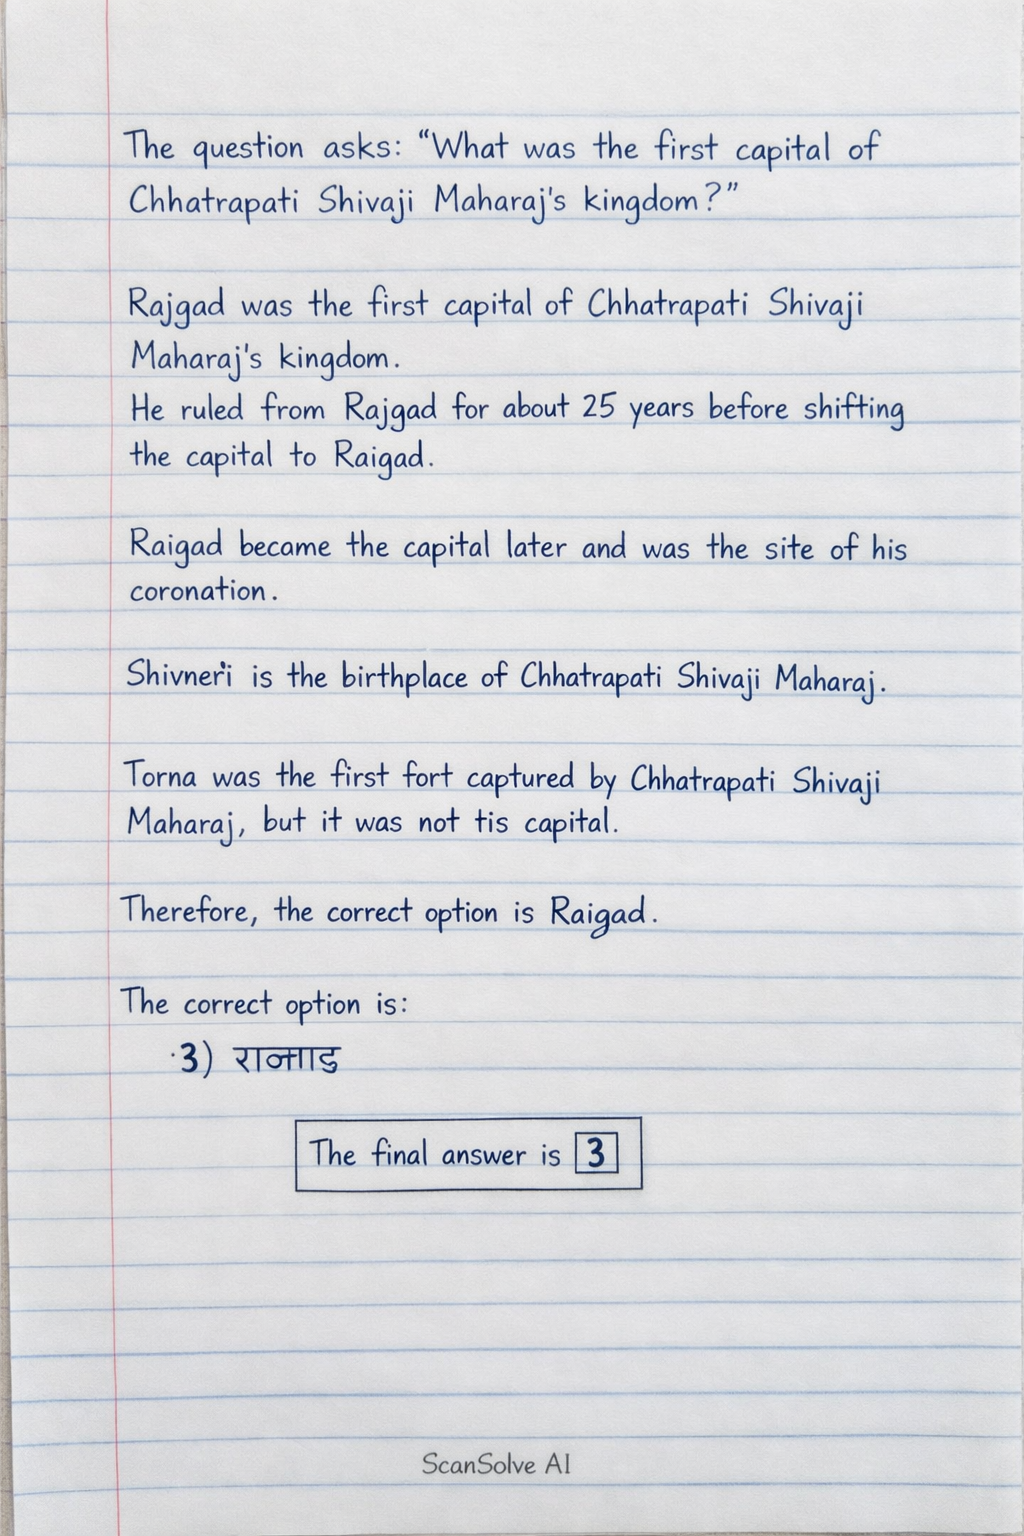 The question asks: “What was the first capital of
Chhatrapati Shivaji Maharaj's kingdom?”
Rajgad was the first capital of Chhatrapati Shivaji
Maharaj's kingdom.
He ruled from Rajgad for about 25 years before shifting
the capital to Raigad.
Raigad became the capital later and was the site of his
coronation.
Shivneri is the birthplace of Chhatrapati Shivaji Maharaj.
Torna was the first fort captured by Chhatrapati Shivaji
Maharaj, but it was not tis capital.
Therefore, the correct option is Raigad.
The correct option is:
3)
The final answer is 3
ScanSolve AI